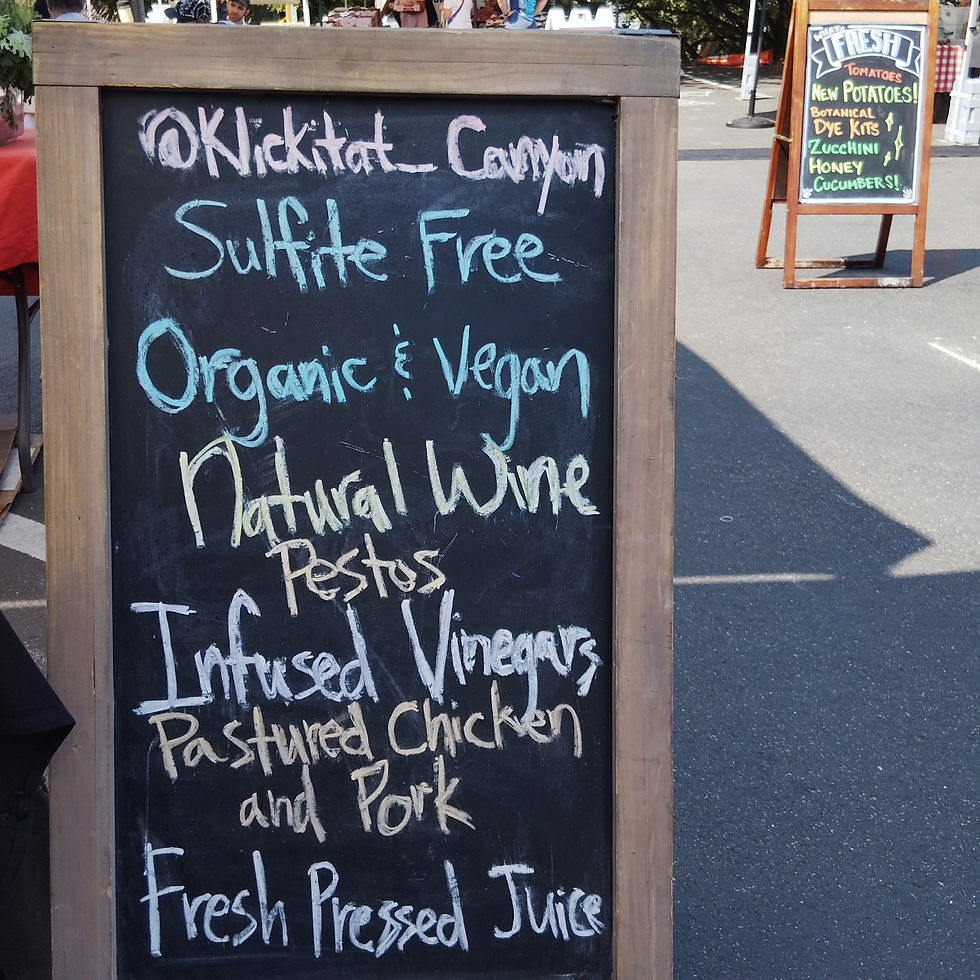 @Klickitat_Canyon
Sulfite Free
Organic & Vegan
Natural Wine
Pestos
Infused Vinegars
Pastured Chicken
and Pork
Fresh Pressed Juice
WHAT'S
FRESH
TOMATOES
NEW POTATOES!
BOTANICAL
DYE KITS
ZUCCHINI
HONEY
CUCUMBERS!